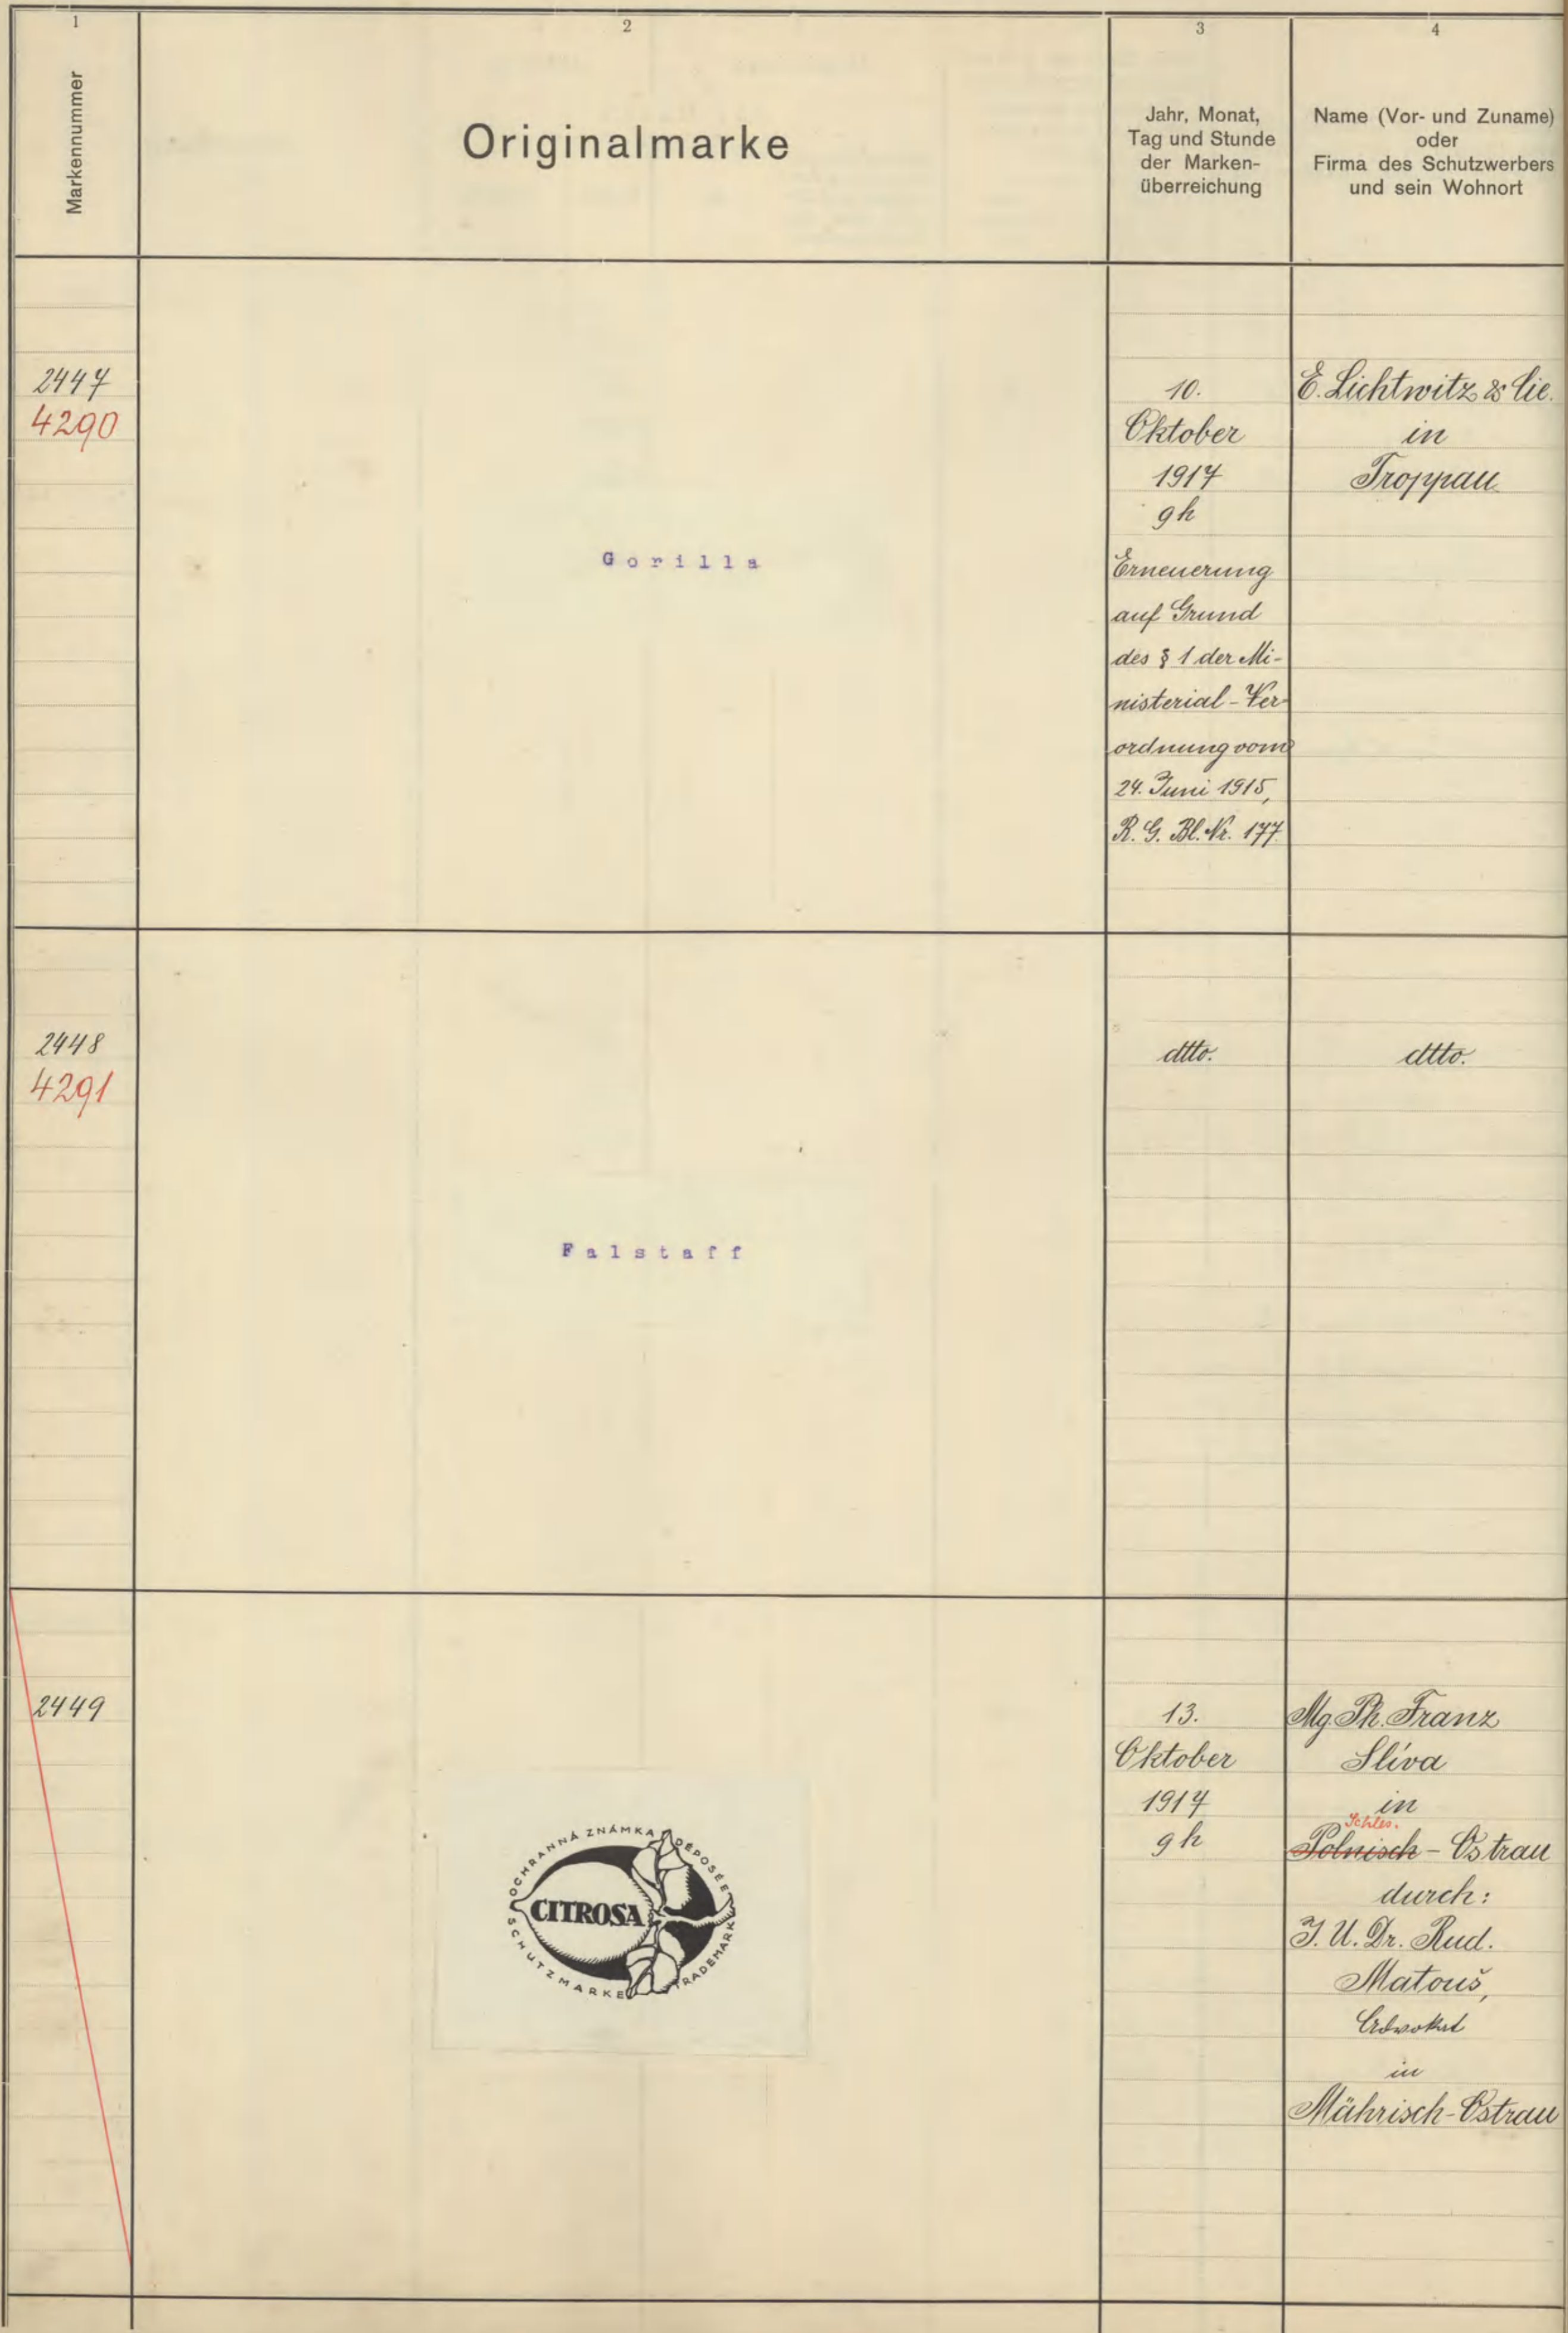 1
2
3
4
Markennummer
Originalmarke
Jahr, Monat,
Tag und Stunde
der Marken-
überreichung
Name (Vor- und Zuname)
oder
Firma des Schutzwerbers
und sein Wohnort
2447
4290
Gorilla
10.
Oktober
1917
9h
Erneuerung
auf Grund
des § 1 der Mi-
nisterial-Ver-
ordnung vom
24. Juni 1915,
R. G. Bl. Nr. 177.
E. Lichtwitz & Cie.
in
Troppau
2448
4291
Falstaff
dtto.
dtto.
2449
OCHRANNÁ ZNÁMKA
DÉPOSÉE
CITROSA
SCHUTZMARKE
TRADEMARK
13.
Oktober
1917
9h
Mg. Ph. Franz
Slíva
in
Schles.
Polnisch - Ostrau
durch:
J. U. Dr. Rud.
Matouš,
Advokat
in
Mährisch-Ostrau